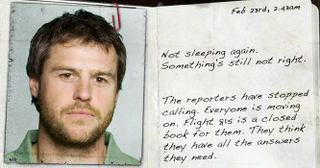 Feb 23rd, 2.43am
Not sleeping again.
Something's still not right.
The reporters have stopped
calling. Everyone is moving
on. Flight 815 is a closed
book for them. They think
they have all the answers
they need.